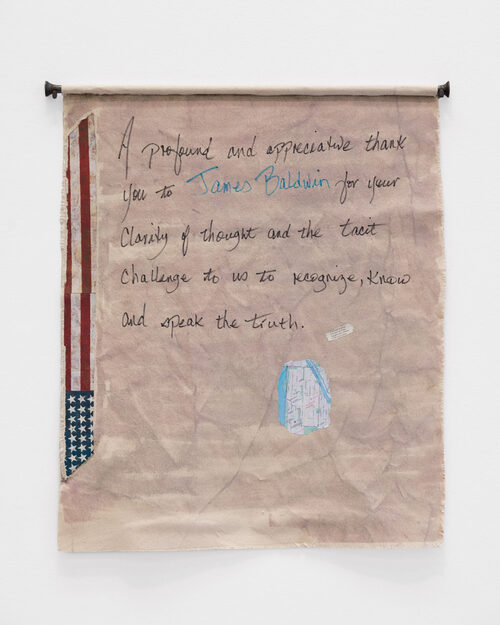 A profound and appreciative thank
you to James Baldwin for your
Clarity of thought and the tacit
Challenge to us to recognize, know
and speak the truth.